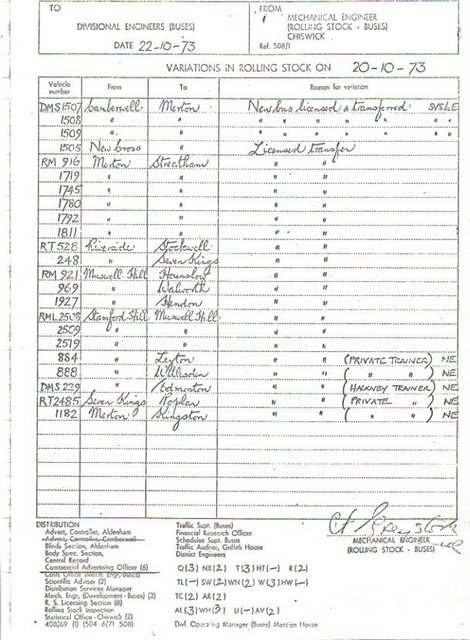 TO
DIVISIONAL ENGINEERS (BUSES)
DATE 22-10-73
FROM
MECHANICAL ENGINEER
(ROLLING STOCK - BUSES)
CHISWICK
Ref. 508/1
VARIATIONS IN ROLLING STOCK ON 20-10-73
Vehicle number From To Reason for variation
DMS 1507 Camberwell Merton New bus licensed & transferred SVSLE
1508 " " " " " " " "
1509 " " " " " " " "
1505 New Cross " Licensed transfer
RM 916 Merton Streatham " "
1719 " " " "
1745 " " " "
1780 " " " "
1792 " " " "
1811 " " " "
RT 528 Riverside Stockwell " "
248 " Seven Kings " "
RM 921 Muswell Hill Hounslow " "
969 " Walworth " "
1927 " Hendon " "
RML 2508 Stamford Hill Muswell Hill " "
2509 " " " "
2519 " " " "
884 " Leyton " " (PRIVATE TRAINER) NE
888 " Willesden " " ( " " ) NE
DMS 229 " Edmonton " " (HACKNEY TRAINER) NE
RT 2485 Seven Kings Poplar " " (PRIVATE " ) NE
1182 Merton Kingston " " ( " " ) NE
MECHANICAL ENGINEER
(ROLLING STOCK - BUSES)
DISTRIBUTION
Advert. Controller, Aldenham
Advert. Controller, Camberwell
Blinds Section, Aldenham
Body Spec. Section,
Central Record
Commercial Advertising Officer (6)
Costs Office (Mech. Engr. Buses)
Scientific Adviser (2)
Distribution Services Manager
Mech. Engr. (Development - Buses) (2)
R. S. Licensing Section (8)
Rolling Stock Inspection
Statistical Office - Chiswick (2)
408/69 (1) (504 6/71 508)
Traffic Supt. (Buses)
Financial Research Officer
Schedules Supt. Buses
Traffic Auditor, Griffith House
District Engineers
Q(3) NX(2) T(3) HT(-) R(2)
TL(-) SW(2) WN(2) W(3) HW(-)
TC(2) AR(2)
AL(3) WH(3) U(-) AV(2)
Divl Operating Manager (Buses) Mansion House